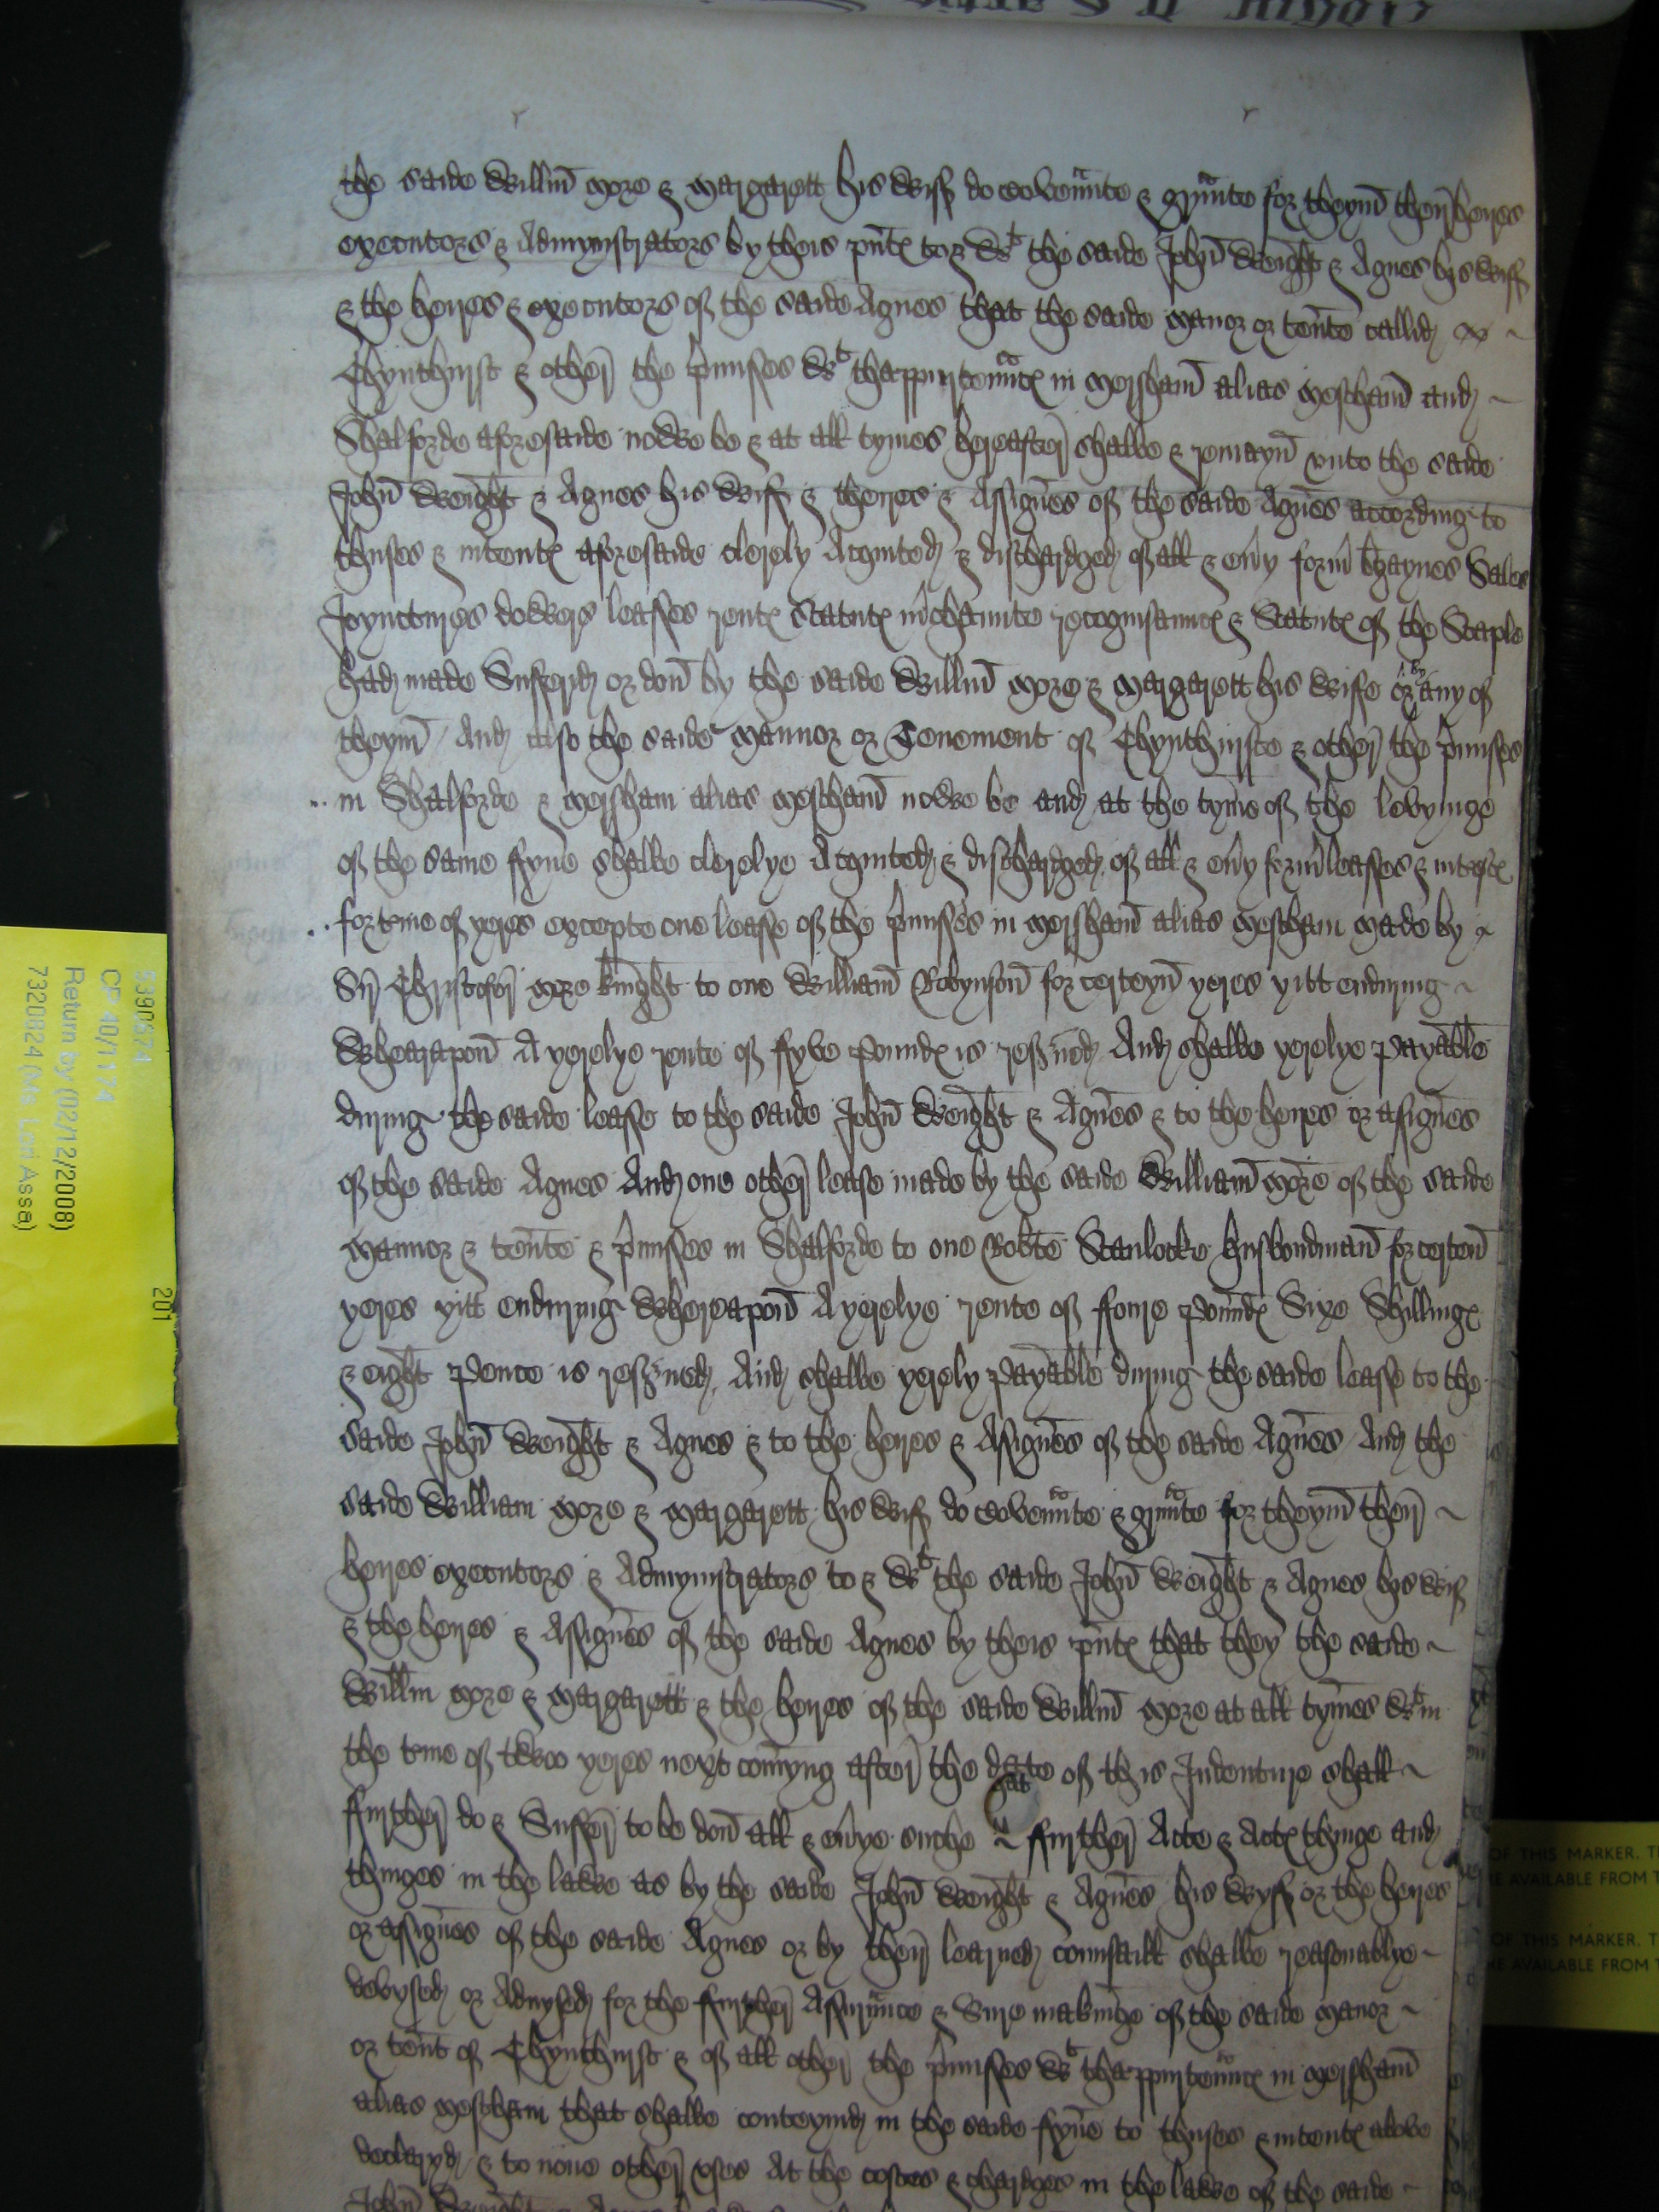 the saide Willm More & Margarett his Wiff do Covennte & grnnte for theym their heires
executors & Admynistrators by theis pntes to & wt the saide John Wright & Agnes his wiff
& the heires & executors of the saide Agnes that the saide Manor or tente callid
Chynthurst & other the pmisses wt thappurtennces in Mersham alias Mestham and
Shalforde aforesaide nowe be & at all tymes hereafter shalbe & remayn vnto the saide
John Wright & Agnes his Wiff & theires & Assignes of the saide Agnes according to
thuses & intentes aforesaide clerely Acquited & dischardged of all & euy form bargaynes Sales
Joynctures dowers leasses rentes Statutes mchaunte recognisaunces & Statutes of the Staple
had made Suffered or don by the saide Willm More & Margarett his Wiffe or by any of
theym And also the saide Mannor or Tenement of Chynthurste & other the pmisses
in Shalforde & Mersham alias Mestham nowe be and at the tyme of the levyinge
of the same ffyne shalbe clerelye Acquited & dischardged of all & euy form leasses & intestes
for tme of yeres excepte one leasse of the pmisses in Mersham alias Mestham made by
Sr Christofer More knight to one William Robynson for certeyn yeres yitt enduring
Wherapon A yerelye rente of ffyve Poundes is resued And shalbe yerelye payable
during the saide leasse to the saide John Wright & Agnes & to the heires or assignes
of the saide Agnes And one other lease made by the saide William More of the saide
Mannor & tente & pmisses in Shalforde to one Robte Stanlocke husbondman for certen
yeres yitt enduring Whereapon A yerelye rente of ffoure poundes Sixe Shillinges
& eight pence is resued And shalbe yerely payable during the saide lease to the
saide John Wright & Agnes & to the heires & Assignes of the saide Agnes And the
saide William More & Margarett his Wiff do Covennte & grnnte for theym their
heires executors & Admynistrators to & wt the saide John Wright & Agnes his wif
& the heires & Assignes of the saide Agnes by theis pntes that they the saide
Willm More & Margarett & the heires of the saide Willm More at all tymes wtin
the tme of twoo yeres next comyng after the date of this Indenture shall
ffurther do & Suffer to be don all & euye suche ffurther Acte & Actes thinge and
thinges in the lawe as by the saide John Wright & Agnes his Wyff or the heires
or assignes of the saide Agnes or by their learned counsaill shalbe reasonablye
devysed or Advysed for the ffurther Assurnce & Sure makinge of the saide Manor
or tent of Chynthurst & of all other the pmisses wt thappurtennces in Mersham
alias Mestham that shalbe conteynid in the saide ffyne to thuses & intentes above
declaryd & to none other vses At the costes & chardges in the lawe of the saide
John Wright & Agnes
5390574
CP 40/1174
Return by (02/12/2008)
7320824 (Ms. Lori Assa)
201
OF THIS MARKER.
AVAILABLE FROM
OF THIS MARKER.
AVAILABLE FROM